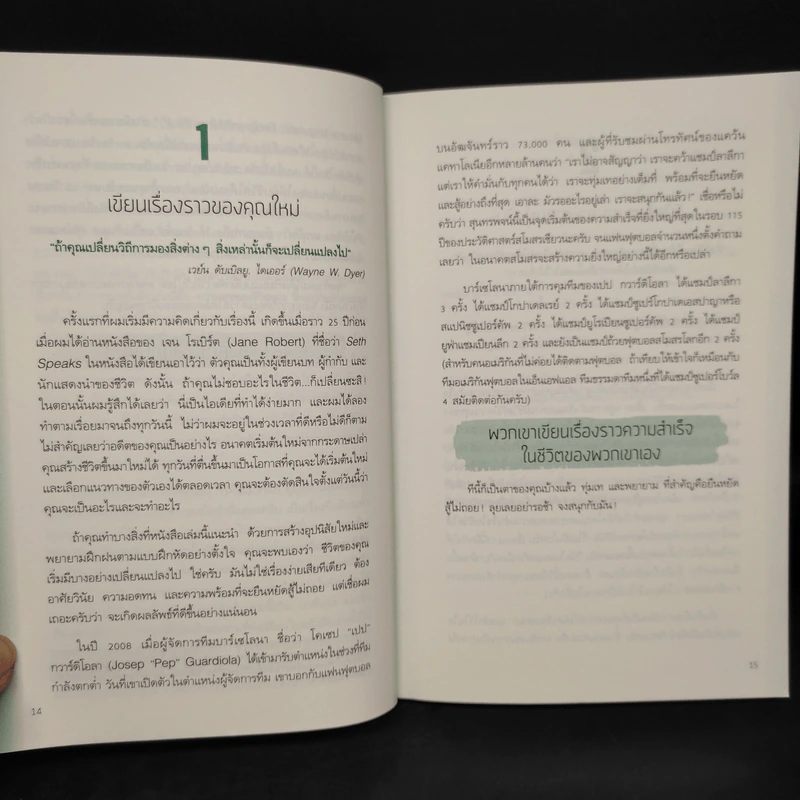 1
เขียนเรื่องราวของคุณใหม่
"ถ้าคุณเปลี่ยนวิถีการมองสิ่งต่าง ๆ สิ่งเหล่านั้นก็จะเปลี่ยนแปลงไป"
เวย์น ดับเบิลยู. ไดเออร์ (Wayne W. Dyer)
ครั้งแรกที่ผมเริ่มมีความคิดเกี่ยวกับเรื่องนี้ เกิดขึ้นเมื่อราว 25 ปีก่อน
เมื่อผมได้อ่านหนังสือของ เจน โรเบิร์ต (Jane Robert) ที่ชื่อว่า Seth
Speaks ในหนังสือได้เขียนเอาไว้ว่า ตัวคุณเป็นทั้งผู้เขียนบท ผู้กำกับ และ
นักแสดงนำของชีวิต ดังนั้น ถ้าคุณไม่ชอบอะไรในชีวิต...ก็เปลี่ยนซะสิ!
ในตอนนั้นผมรู้สึกได้เลยว่า นี่เป็นไอเดียที่ทำได้ง่ายมาก และผมได้ลอง
ทำตามเรื่อยมาจนถึงทุกวันนี้ ไม่ว่าผมจะอยู่ในช่วงเวลาที่ดีหรือไม่ดีก็ตาม
ไม่สำคัญเลยว่าอดีตของคุณเป็นอย่างไร อนาคตเริ่มต้นใหม่จากกระดาษเปล่า
คุณสร้างชีวิตขึ้นมาใหม่ได้ ทุกวันที่ตื่นขึ้นมาเป็นโอกาสที่คุณจะได้เริ่มต้นใหม่
และเลือกแนวทางของตัวเองได้ตลอดเวลา คุณจะต้องตัดสินใจตั้งแต่วันนี้ว่า
คุณจะเป็นอะไรและจะทำอะไร
ถ้าคุณทำบางสิ่งที่หนังสือเล่มนี้แนะนำ ด้วยการสร้างอุปนิสัยใหม่และ
พยายามฝึกฝนตามแบบฝึกหัดอย่างตั้งใจ คุณจะพบเองว่า ชีวิตของคุณ
เริ่มมีบางอย่างเปลี่ยนแปลงไป ใช่ครับ มันไม่ใช่เรื่องง่ายเสียทีเดียว ต้อง
อาศัยวินัย ความอดทน และความพร้อมที่จะยืนหยัดสู้ไม่ถอย แต่เชื่อผม
เถอะครับว่า จะเกิดผลลัพธ์ที่ดีขึ้นอย่างแน่นอน
ในปี 2008 เมื่อผู้จัดการทีมบาร์เซโลนา ชื่อว่า โคเซป "เปป"
กวาร์ดิโอลา (Josep "Pep" Guardiola) ได้เข้ามารับตำแหน่งในช่วงที่ทีม
กำลังตกต่ำ วันที่เขาเปิดตัวในตำแหน่งผู้จัดการทีม เขาบอกกับแฟนฟุตบอล
14
บนอัฒจันทร์ราว 73,000 คน และผู้ที่รับชมผ่านโทรทัศน์ของแคว้น
แคทาโลเนียอีกหลายล้านคนว่า "เราไม่อาจสัญญาว่า เราจะคว้าแชมป์ลาลีกา
แต่เราให้คำมั่นกับทุกคนได้ว่า เราจะทุ่มเทอย่างเต็มที่ พร้อมที่จะยืนหยัด
และสู้อย่างถึงที่สุด เอาละ มัวรออะไรอยู่เล่า เราจะสนุกกันแล้ว!" เชื่อหรือไม่
ครับว่า สุนทรพจน์นี้เป็นจุดเริ่มต้นของความสำเร็จที่ยิ่งใหญ่ที่สุดในรอบ 115
ปีของประวัติศาสตร์สโมสรเชียวนะครับ จนแฟนฟุตบอลจำนวนหนึ่งตั้งคำถาม
เลยว่า ในอนาคตสโมสรจะสร้างความยิ่งใหญ่อย่างนี้ได้อีกหรือเปล่า
บาร์เซโลนาภายใต้การคุมทีมของเปป กวาร์ดิโอลา ได้แชมป์ลาลีกา
3 ครั้ง ได้แชมป์โกปาเดลเรย์ 2 ครั้ง ได้แชมป์ซูเปร์โกปาเดเอสปาญาหรือ
สแปนิชซูเปอร์คัพ 2 ครั้ง ได้แชมป์ยูโรเปียนซูเปอร์คัพ 2 ครั้ง ได้แชมป์
ยูฟ่าแชมเปียนลีก 2 ครั้ง และยังเป็นแชมป์ถ้วยฟุตบอลสโมสรโลกอีก 2 ครั้ง
(สำหรับคนอเมริกันที่ไม่ค่อยได้ติดตามฟุตบอล ถ้าเทียบให้เข้าใจก็เหมือนกับ
ทีมอเมริกันฟุตบอลในเอ็นเอฟแอล ทีมธรรมดาทีมหนึ่งที่ได้แชมป์ซูเปอร์โบว์ล
4 สมัยติดต่อกันครับ)
พวกเขาเขียนเรื่องราวความสำเร็จ
ในชีวิตของพวกเขาเอง
ทีนี้ก็เป็นตาของคุณบ้างแล้ว ทุ่มเท และพยายาม ที่สำคัญคือยืนหยัด
สู้ไม่ถอย! ลุยเลยอย่ารอช้า จงสนุกกับมัน!
15